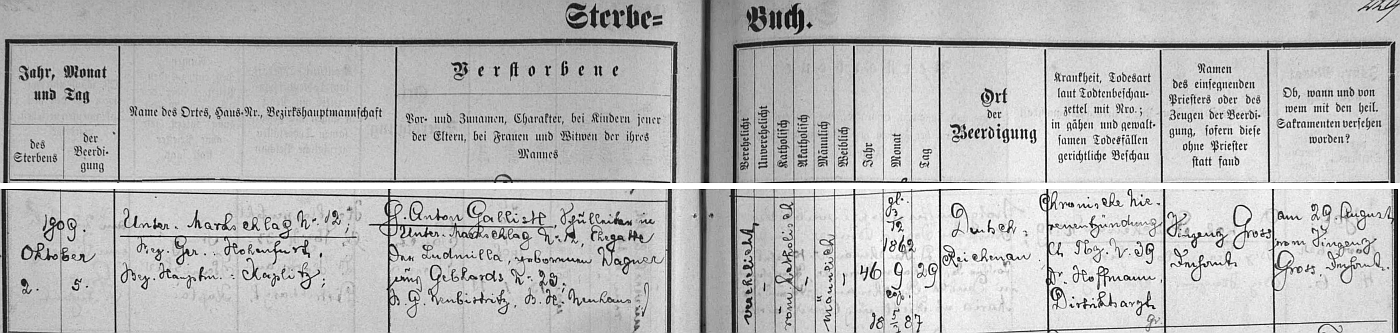 Sterbe=
Buch.
Jahr, Monat
und Tag
des
Sterbens
der
Beerdi-
gung
Name des Ortes, Haus-Nr., Bezirkshauptmannschaft
Verstorbene
Vor- und Zunamen, Charakter, bei Kindern jener
der Eltern, bei Frauen und Witwen der ihres
Mannes
Verehelicht
Unverehelicht
Katholisch
Akatholisch
Männlich
Weiblich
Jahr
Monat
Tag
Ort
der
Beerdigung
Krankheit, Todesart
laut Todtenbeschau-
zettel mit Nro.;
in gähen und gewalt-
samen Todesfällen
gerichtliche Beschau
Namen
des einsegnenden
Priesters oder des
Zeugen der Beerdi-
gung, sofern diese
ohne Priester
statt fand
Ob, wann und von
wem mit den heil.
Sakramenten versehen
worden?
1909.
Oktober
2. 5.
Unter-Markschlag N. 12;
Bez. Ger.: Hohenfurth,
Bez. Hauptm.: Kaplitz;
H. Anton Gallistl, Schulleiter in
Unter-Markschlag N. 12, Ehegatte
der Ludmilla, geborenen Wagner
aus Gebhards N. 23;
B. G. Neubistritz, B. H. Neuhaus
verehelicht
röm. katholisch
männlich
1862
46 9 29
87
Deutsch-
Reichenau
Chronische Nie-
renentzündung
N. 39
Dr. Hoffmann,
Distriktsarzt
Vinzenz Gross
Dechant
am 29. August
vom Vinzenz
Gross, Dechant